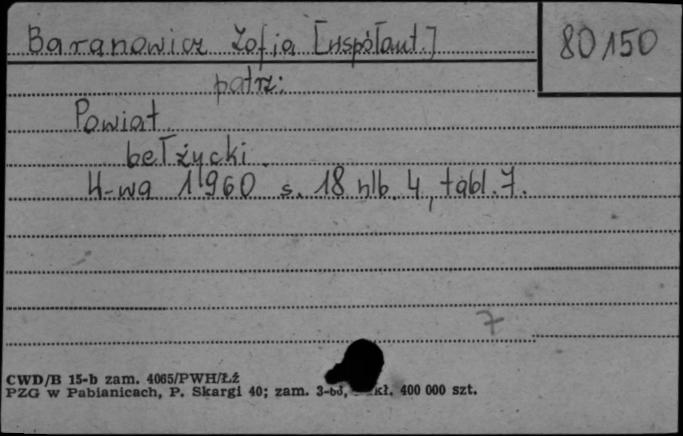 Baranowicz Zofia [współaut.]
80150
patrz:
Powiat
bełżycki.
W-wa 1960 s. 18 nlb. 4, tabl. 7.
7
CWD/B 15-b zam. 4065/PWH/Łź
PZG w Pabianicach, P. Skargi 40; zam. kł. 400 000 szt.